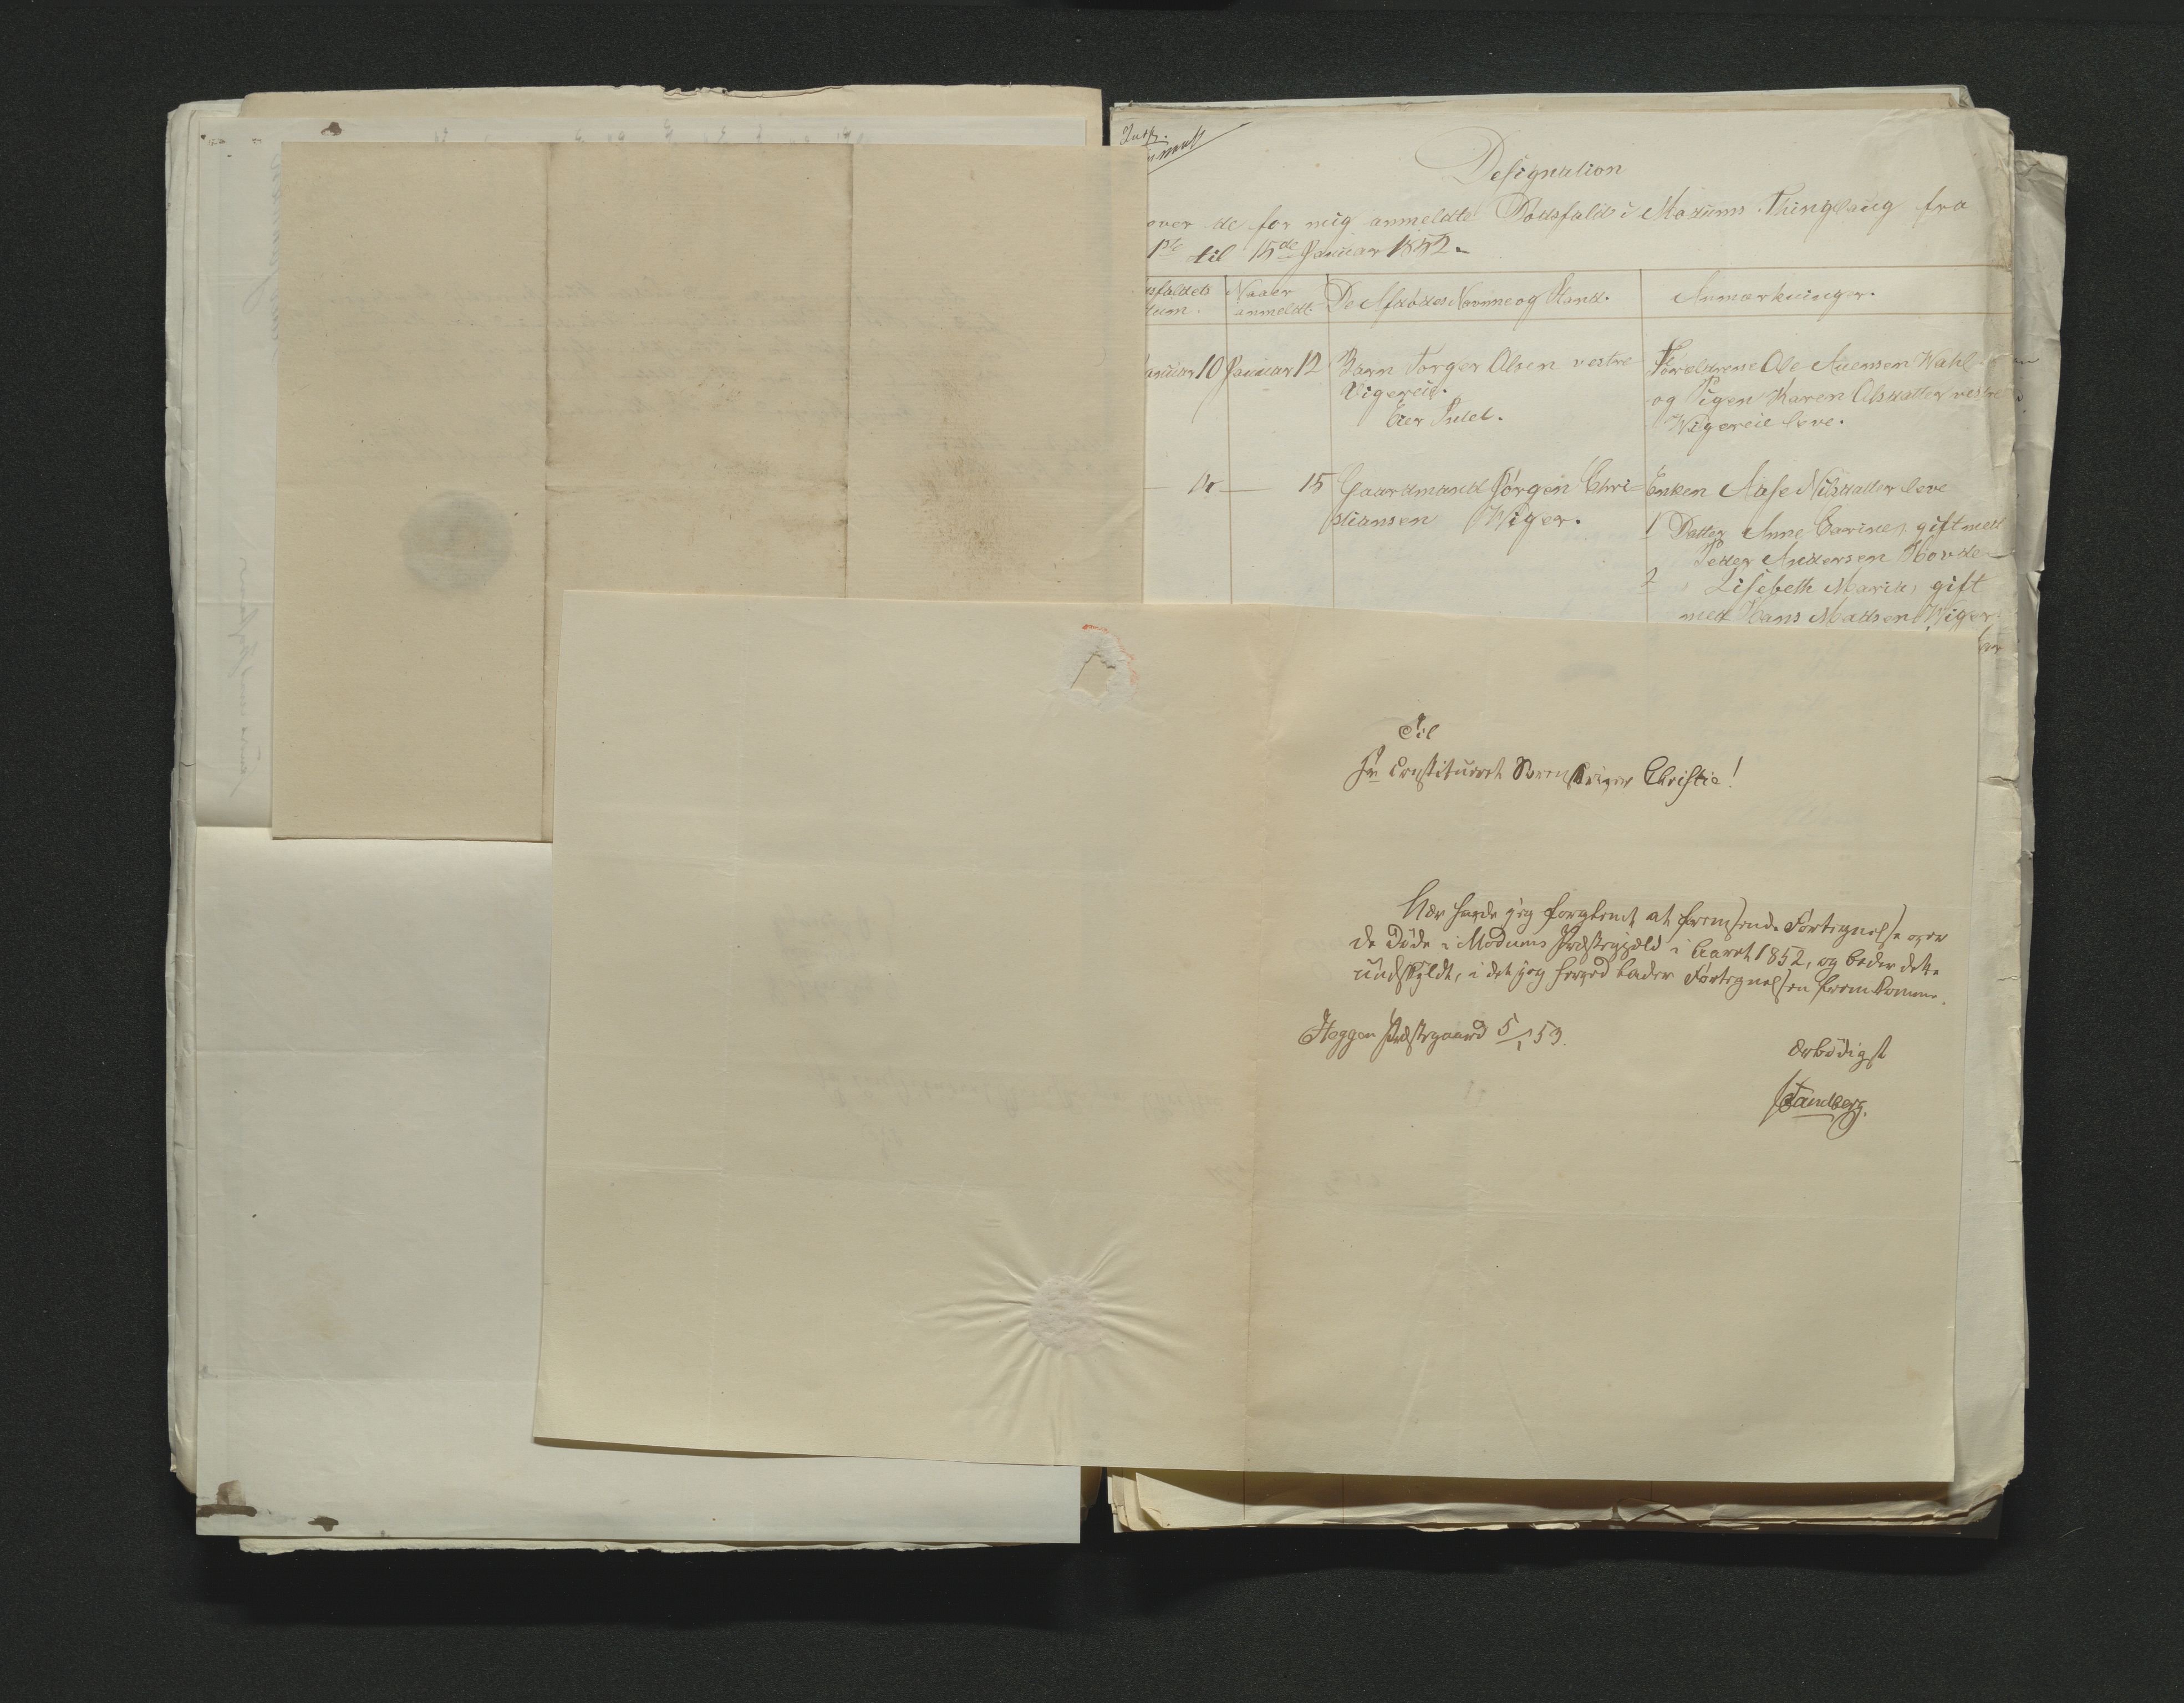 Designation
over de for mig anmeldte Dødsfald i Modums Thinglaug fra
1ste til 15de Januar 1852.
Naaer
anmeldt.
De Afdødes Navnne og Stand.
Anmærkninger.
10 Januar 12 Barn Torger Olsen vestre
Vigereie.
Eier Intet.
Forældrene Ole Auensen Wahl
og Pigen Karen Olsdatter vestre
Wigereie leve.
15 Gaardmand Jørgen Chri-
stiansen Wiger.
Enken Aase Nilsdatter leve
1 Datter Anne Carine, gift med
Peder Andersen Hovde
2 Lisebeth Maria, gift
med Hans Madsen Wiger
Til
Hr constitueret Sorenskriver Christie!
Her havde jeg forglemt at fremsende Fortegnelse over
de Døde i Modums Præstegjæld i Aaret 1852, og beder dette
undskyldt, i det jeg herved lader Fortegnelsen fremkomme.
Heggen Præstegaard 5/1 53.
Ærbødigst